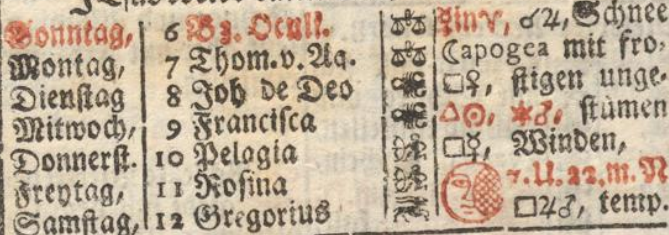 Sonntag, 6 B3. Oculi. ♎ ☿ in ♈, ☌♃, Schnee
Montag, 7 Thom. v. Aq. ♎ ☾ apogea mit fro-
Dienstag 8 Joh de Deo ♏ □♀, stigen unge-
Mitwoch, 9 Francisca ♏ △☉, ✶♂, stümen
Donnerst. 10 Pelagia □☿, Winden,
Freytag, 11 Rosina 7. U. 22. m. N
Samstag, 12 Gregorius □♃♂, temp.